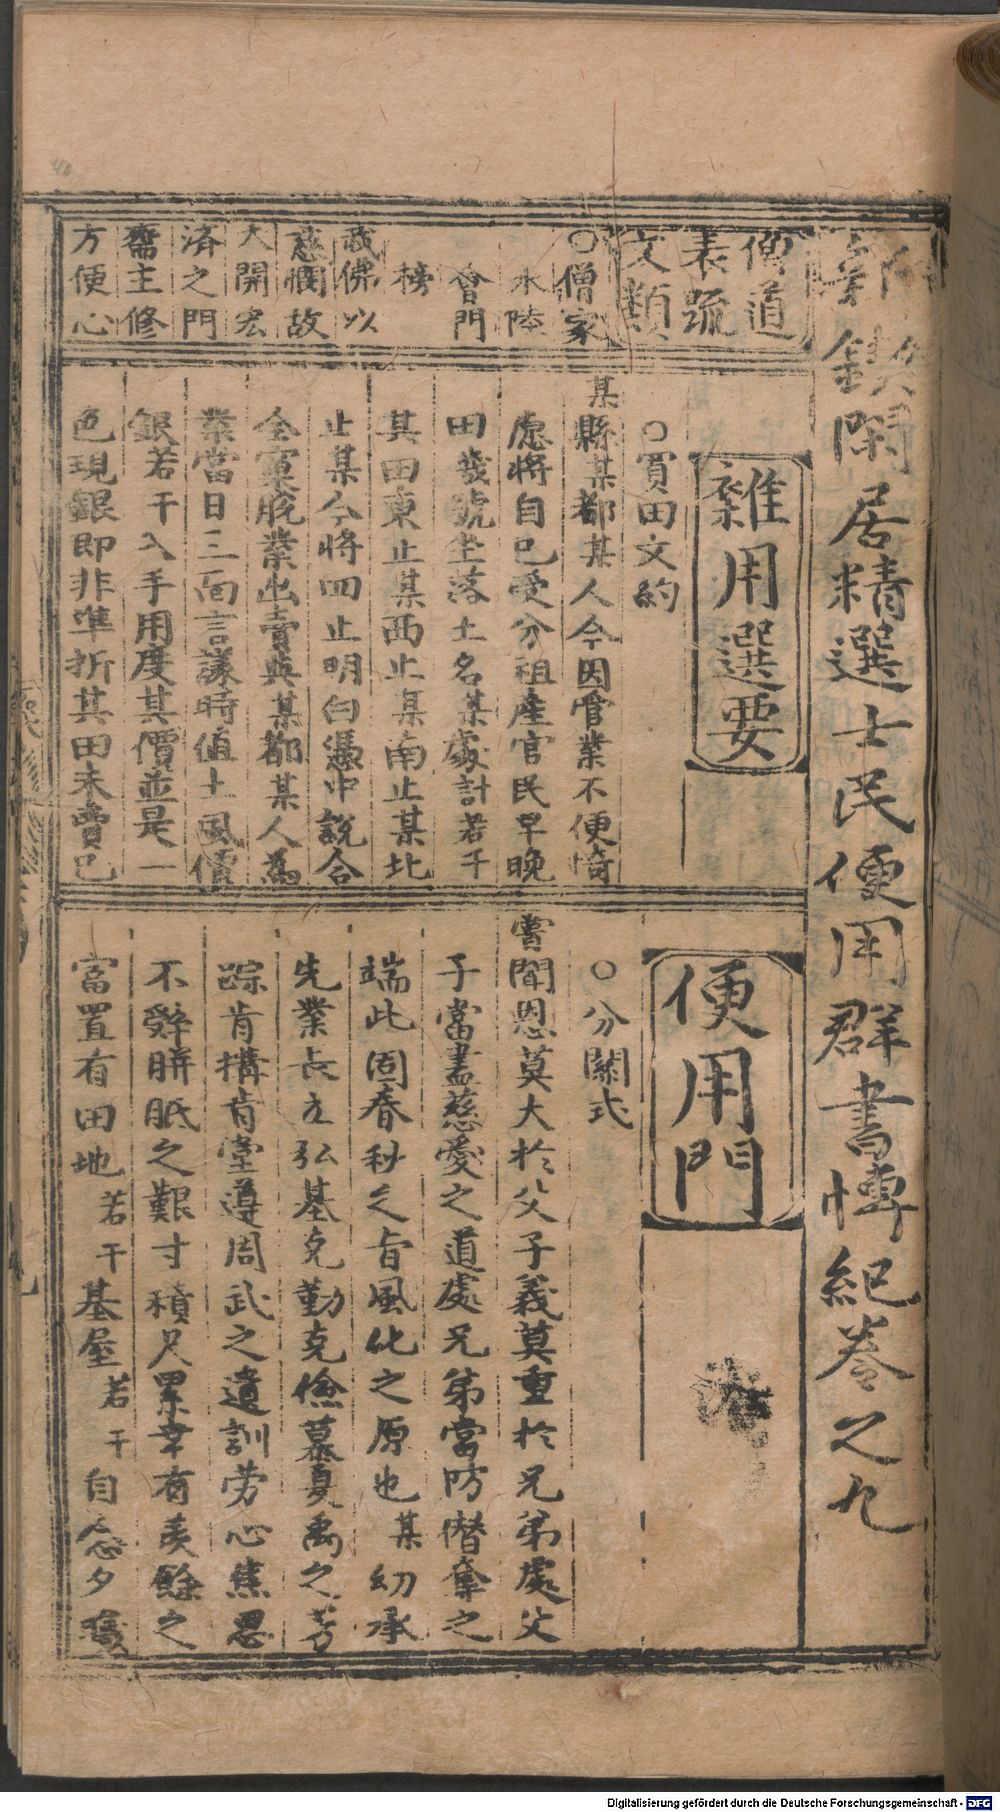 新鋟閑居精選士民便用群書博紀卷之九
僧道
表疏
文類
○僧家
水陸
會門
榜
我佛以
慈憫故
大開宏
濟之門
齋主修
方便心
雜用選要
○買田文約
某縣某都某人今因管業不便情
愿將自已受分祖產官民早晚
田幾號坐落土名某處計若干
其田東止某西止某南止某北
止某今將四止明白憑中說合
全寘脫業出賣與某都某人為
業當日三面言議時值土風價
銀若干入手用度其價並是一
色現銀即非準折其田未賣已
便用門
○分關式
嘗聞恩莫大於父子義莫重於兄弟處父
子當盡慈愛之道處兄弟當防僭奪之
端此固春秋之旨風化之原也某幼承
先業長立弘基克勤克儉慕夏禹之芳
踪肯搆肯堂遵周武之遺訓勞心焦思
不辭胼胝之艱寸積尺累幸有羨餘之
富置有田地若干基屋若干自念夕
Digitalisierung gefördert durch die Deutsche Forschungsgemeinschaft - DFG